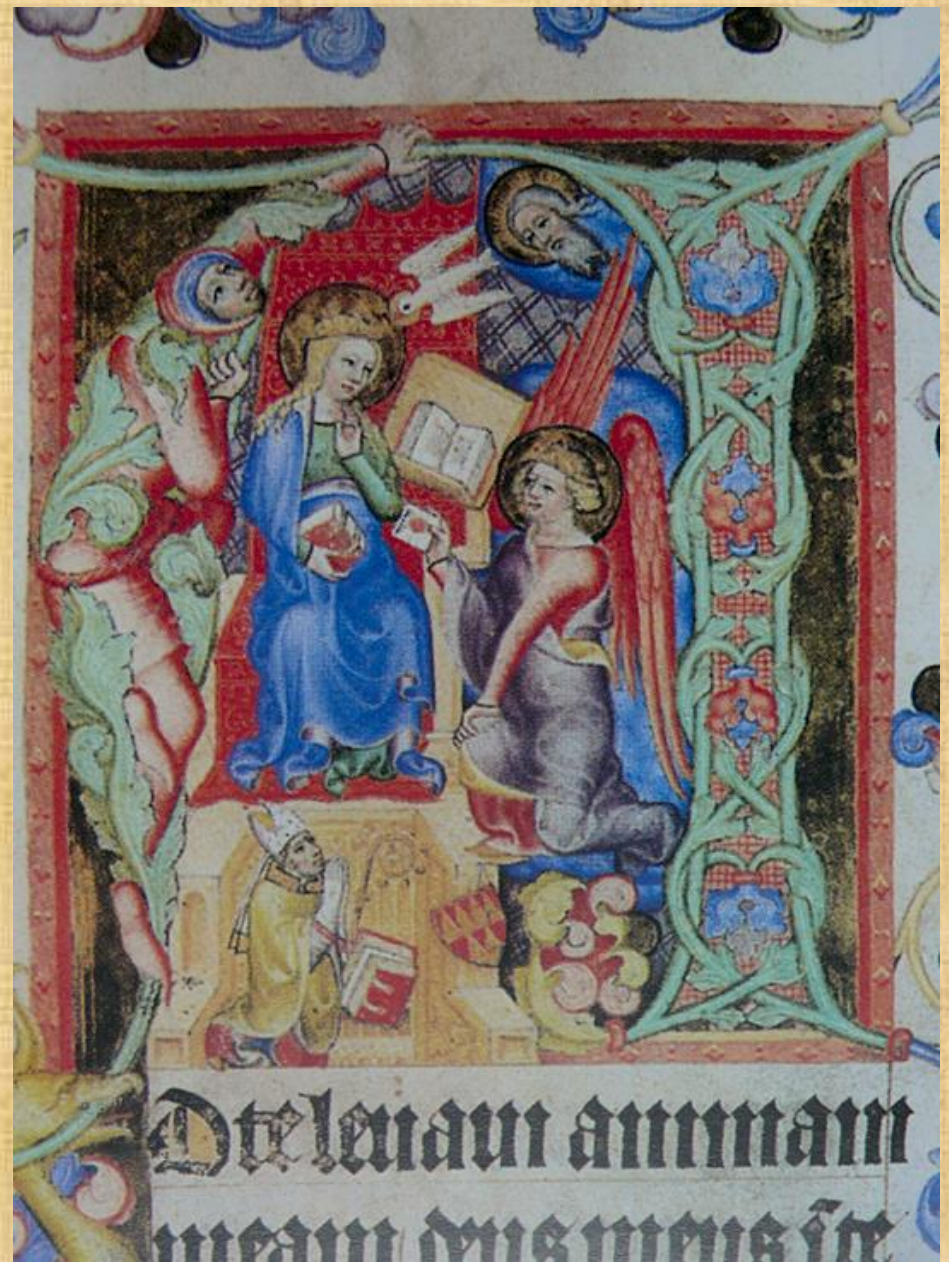 ADte leuaui animam
meam deus meus ī te